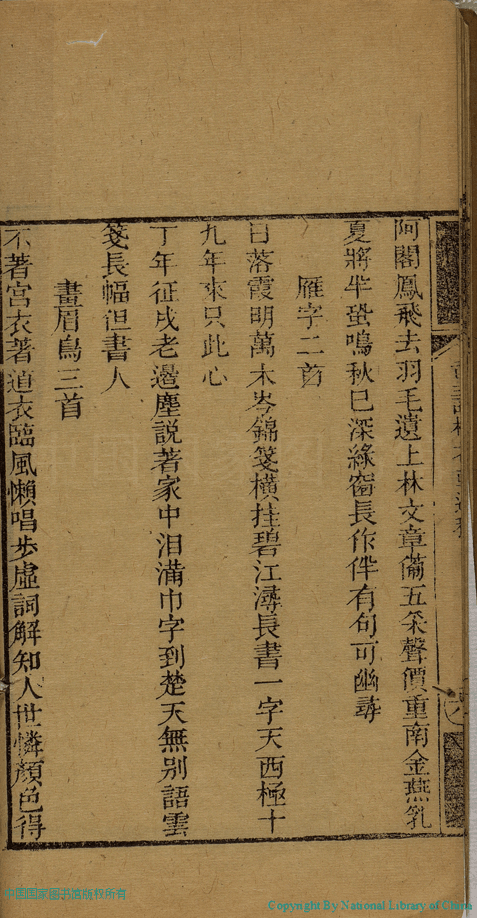 阿閣鳳飛去羽毛遺上林文章備五采聲價重南金燕乳
夏將半蛩鳴秋已深綠窗長作伴有句可幽尋
雁字二首
日落霞明萬木岑錦箋橫挂碧江潯長書一字天西極十
九年來只此心
丁年征戍老邊塵説著家中淚滿巾字到楚天無別語雲
箋長幅但書人
畫眉鳥三首
不著宮衣著道衣臨風懶唱步虛詞解知人世憐顏色得
中国国家图书馆版权所有
Copyright By National Library of China